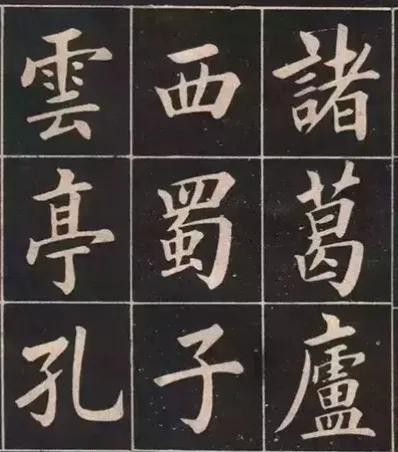 諸葛廬
西蜀子
雲亭孔